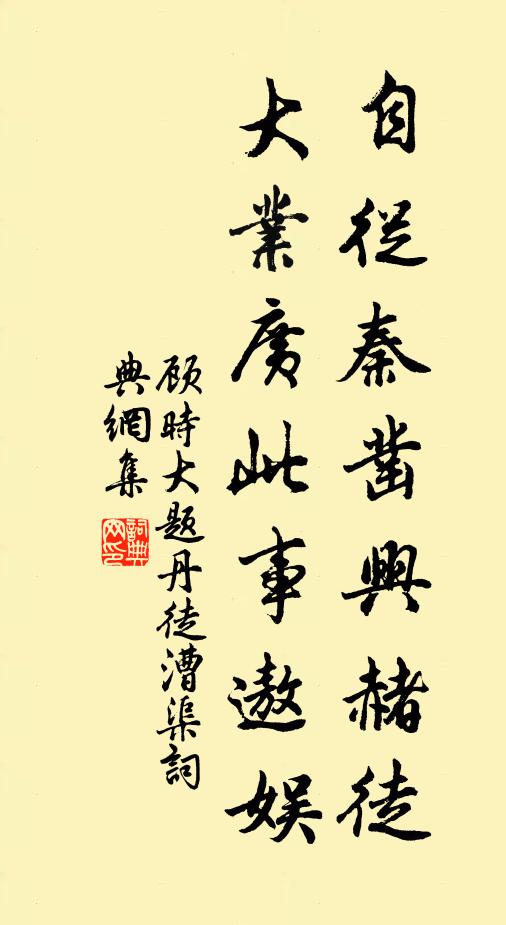 自從秦鑿興赭徒
大業廣此事遨娛
顾時大题丹徒漕渠詞
典網集
詞典
网印